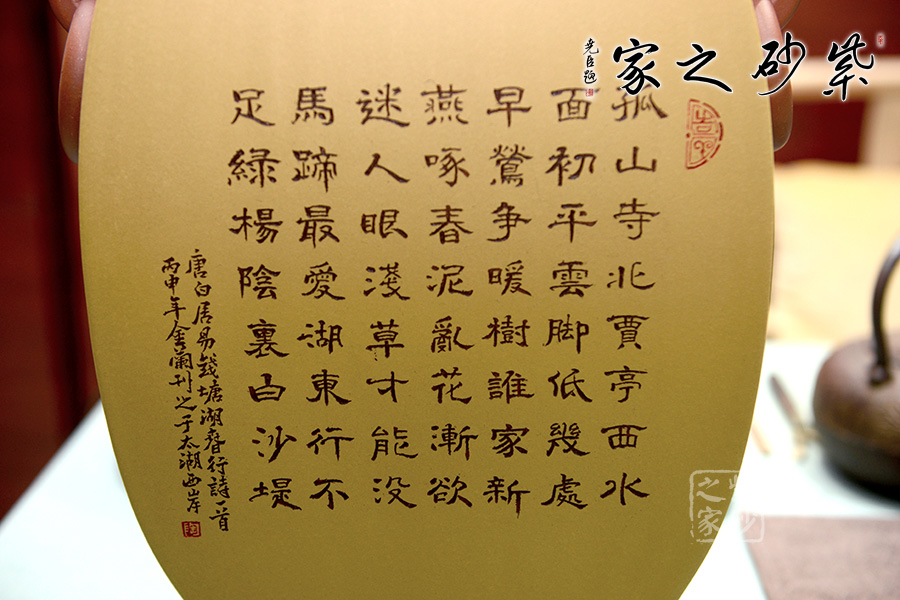 紫砂之家
尭臣題
孤山寺北賈亭西水
面初平雲脚低幾處
早鶯争暖樹誰家新
燕啄春泥亂花漸欲
迷人眼淺草才能没
馬蹄最愛湖東行不
足綠楊陰裏白沙堤
唐白居易錢塘湖春行詩一首
丙申年金蘭刊之于太湖西岸
陶
之家